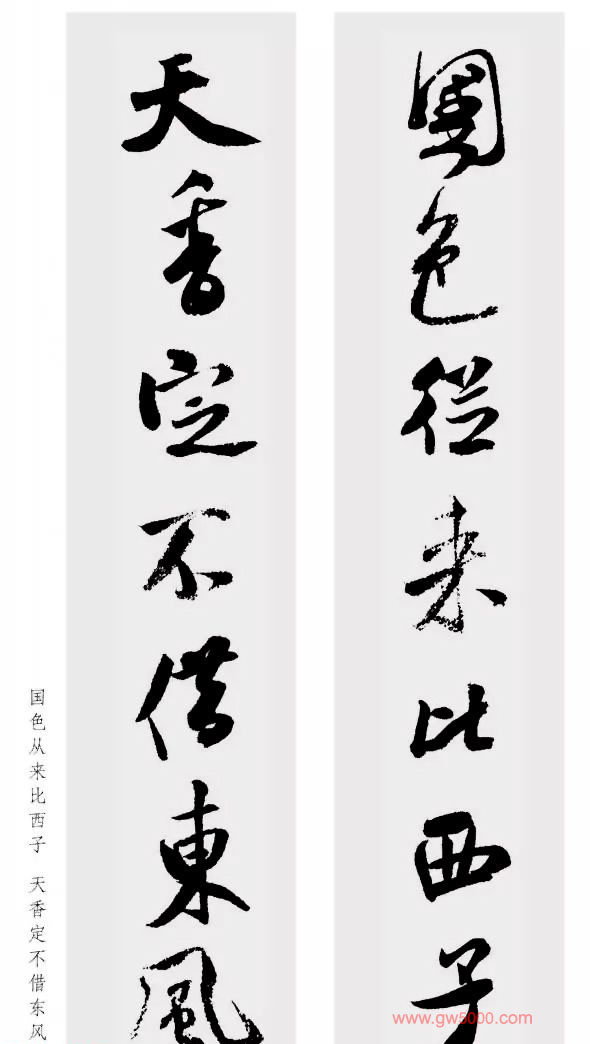 國色從来比西子
天香定不借東風
国色从来比西子 天香定不借东风
www.gw5000.com